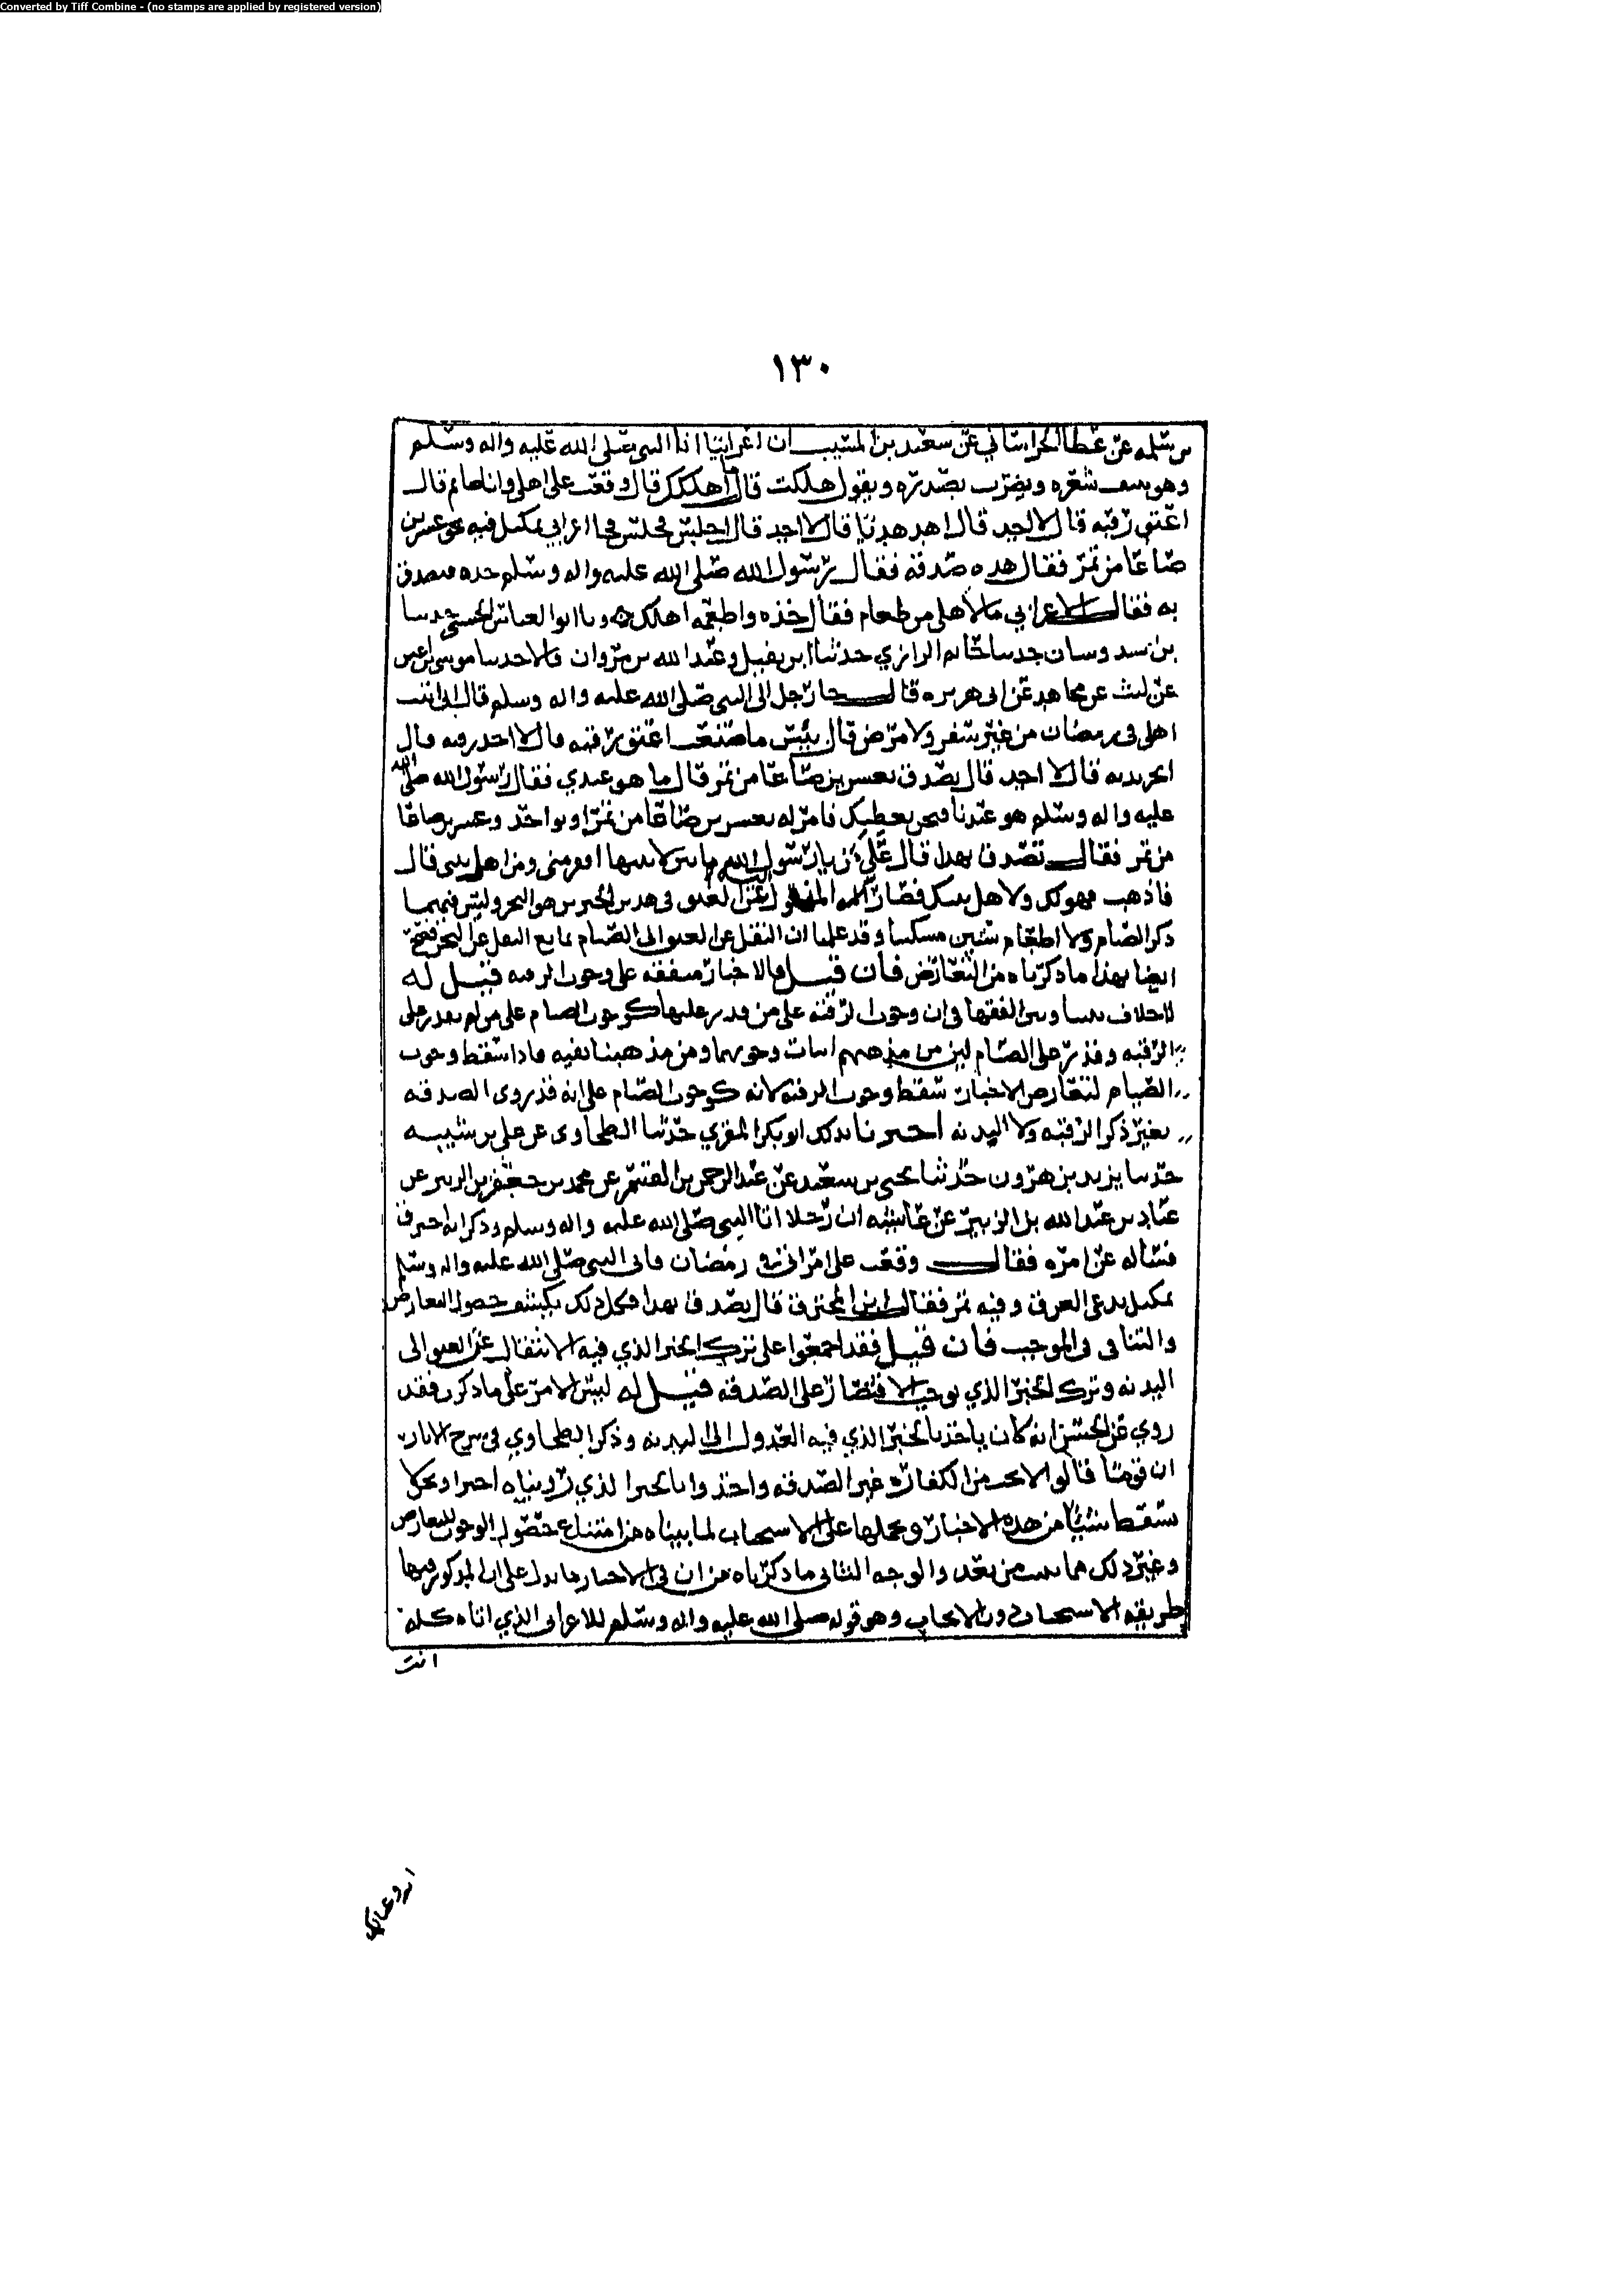 Converted by Tiff Combine - (no stamps are applied by registered version)
١٣٠
بن سلمه عن عطا الخراساني عن سعيد بن المسيب ان اعرابيا اتا النبي صلى الله عليه واله وسلم
وهو ينتف شعره ويضرب بصدره ويقول هلكت قال ما اهلكك قال وقعت على اهلي وانا صايم قال
اعتق رقبه قال لا اجد قال اهد هديا قال لا اجد قال اجلس فجلس فجا اعرابي بمكتل فيه نحو عشرين
صاعا من تمر فقال هذه صدقه فقال رسول الله صلى الله عليه واله وسلم خذه فتصدق
به فقال الاعرابي ما لاهلي من طعام فقال خذه واطعمه اهلك ونا ابو العباس الحسني حدثنا
بن سدوسان حدثنا حاتم الرازي حدثنا ابن نفيل وعبد الله بن مروان قالا حدثنا موسى بن اعين
عن ليث عن مجاهد عن ابي هريره قال جا رجل الى النبي صلى الله عليه واله وسلم قال اني اتيت
اهلي في رمضان من غير سفر ولا مرض قال بئس ما صنعت اعتق رقبه قال لا اجد رقبه قال
انحر بدنه قال لا اجد قال تصدق بعشرين صاعا من تمر قال ما هو عندي فقال رسول الله صلى الله
عليه واله وسلم هو عندنا فنحن نعطيك فامر له بعشرين صاعا من تمر او بواحد وعشرين صاعا
من تمر فقال تصدق بهذا قال على من يا رسول الله ما بين لابتيها افقر مني ومن اهل بيتي قال
فاذهب فهو لك ولاهل بيتك فصار المنقول اليه عن العتق في هذين الخبرين هو النحر وليس فيهما
ذكر الصيام ولا اطعام ستين مسكينا وقد علمنا ان النقل عن العتق الى الصيام مانع النقل عن النحر فصح
ايضا بهذا ما ذكرناه من التعارض فان قيل فالاخبار متفقه على وجوب الرقبه قيل له
لا خلاف بيننا وبين الفقها في ان وجوب الرقبه على من قدر عليها كوجوب الصيام على من لم يقدر على
الرقبه وقدر على الصيام ليس من مذهبهم اثبات وجوبهما ومن مذهبنا نفيه فاذا سقط وجوب
الصيام لتعارض الاخبار سقط وجوب الرقبه لانه كوجوب الصيام على انه قد روى الصدقه
بغير ذكر الرقبه ولا البدنه اخبرنا بذلك ابو بكر المقري حدثنا الطحاوي عن علي بن شيبه
حدثنا يزيد بن هرون حدثنا يحيى بن سعيد عن عبد الرحمن بن القسم عن محمد بن جعفر بن الزبير عن
عباد بن عبد الله بن الزبير عن عايشه ان رجلا اتا النبي صلى الله عليه واله وسلم وذكر انه احترق
فساله عن امره فقال وقعت على امراتي في رمضان فاتى النبي صلى الله عليه واله وسلم
بمكتل يدعى العرق وفيه تمر فقال اين المحترق قال تصدق بهذا فكل ذلك يكشف حصول التعارض
والتنافي في الموجب فان قيل فقد اجمعوا على ترك الخبر الذي فيه الانتقال عن العتق الى
البدنه وترك الخبر الذي يوجب الاقتصار على الصدقه قيل له ليس الامر على ما ذكرت فقد
روي عن الحسن انه كان ياخذ بالخبر الذي فيه العدول الى البدنه وذكر الطحاوي في شرح الاثار
ان قوما قالوا لا يجب من الكفاره غير الصدقه واخذوا بالخبر الذي رويناه اخيرا ونحن لا
نسقط شيئا من هذه الاخبار ونحملها على الاستحباب لما بيناه من امتناع حصول الوجوب للتعارض
وغير ذلك مما نبينه من بعد والوجه الثاني ما ذكرناه من ان في الاخبار ما يدل على ان المذكور فيها
طريقه الاستحباب دون الايجاب وهو قوله صلى الله عليه واله وسلم للاعرابي الذي اتاه كله
انت